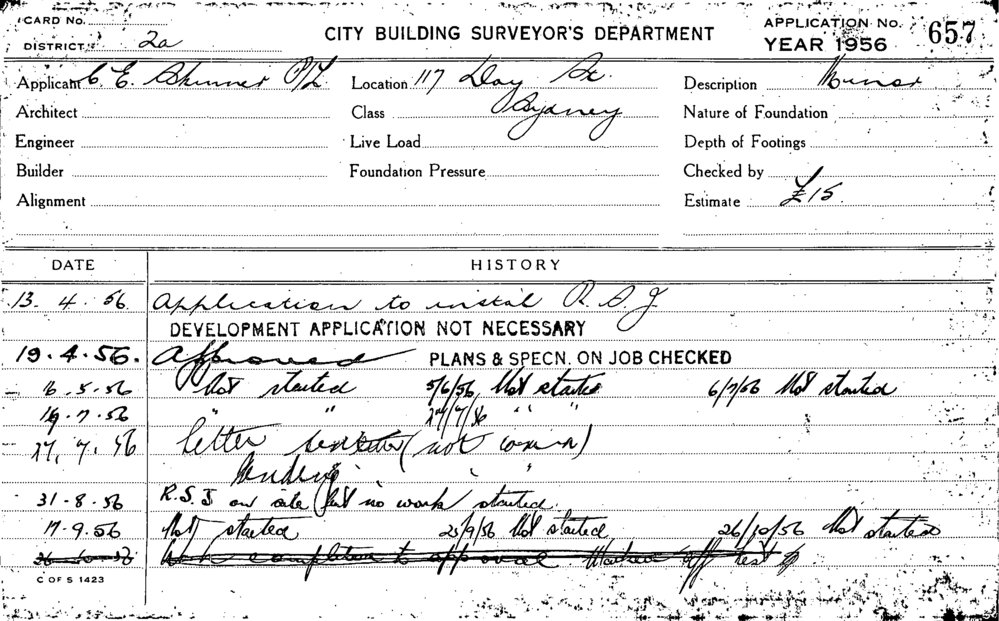 CARD No.
DISTRICT 2a
CITY BUILDING SURVEYOR'S DEPARTMENT
APPLICATION No. 657
YEAR 1956
Applicant C. E. Skinner P/L Location 117 Day St. Description Minor
Architect Class Sydney Nature of Foundation
Engineer Live Load Depth of Footings
Builder Foundation Pressure Checked by
Alignment Estimate £15
DATE HISTORY
13. 4. 56 Application to instal R.S.J
DEVELOPMENT APPLICATION NOT NECESSARY
19.4.56. Approved PLANS & SPECN. ON JOB CHECKED
.5.56 Not started 5/6/56 Not started 6/7/56 Not started
.7.56 " " 24/7/56 " "
27.7.56 letter (not
31.8.56 R.S.J on site but no work started
.9.56 Not started 25/9/56 Not started 26/10/56 Not started
completed to approval
C OF S 1423